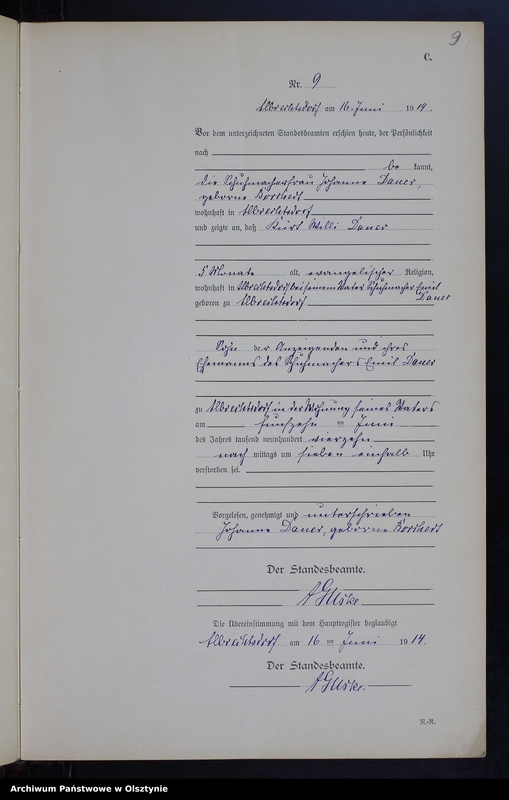 9
C.
Nr. 9
Albrechtsdorf am 16. Juni 1914.
Vor dem unterzeichneten Standesbeamten erschien heute, der Persönlichkeit
nach
be kannt,
die Schuhmacherfrau Johanne Dauer,
geborne
wohnhaft in Albrechtsdorf
und zeigte an, daß Kurt Willi Dauer
5 Monate alt, evangelischer Religion,
wohnhaft in Albrechtsdorf bei seinem Vater Schuhmacher Emil
Dauer
geboren zu Albrechtsdorf
Sohn der Anzeigenden und ihres
Ehemanns des Schuhmachers Emil Dauer
zu Albrechtsdorf in der Wohnung seines Vaters
am fünfzehn ten Juni
des Jahres tausend neunhundert vierzehn
nach mittags um sieben einhalb Uhr
verstorben sei.
Vorgelesen, genehmigt und unterschrieben
Johanne Dauer, geborne
Der Standesbeamte.
Die Übereinstimmung mit dem Hauptregister beglaubigt
Albrechtsdorf am 16 ten Juni 1914.
Der Standesbeamte.
N.-R.
Archiwum Państwowe w Olsztynie